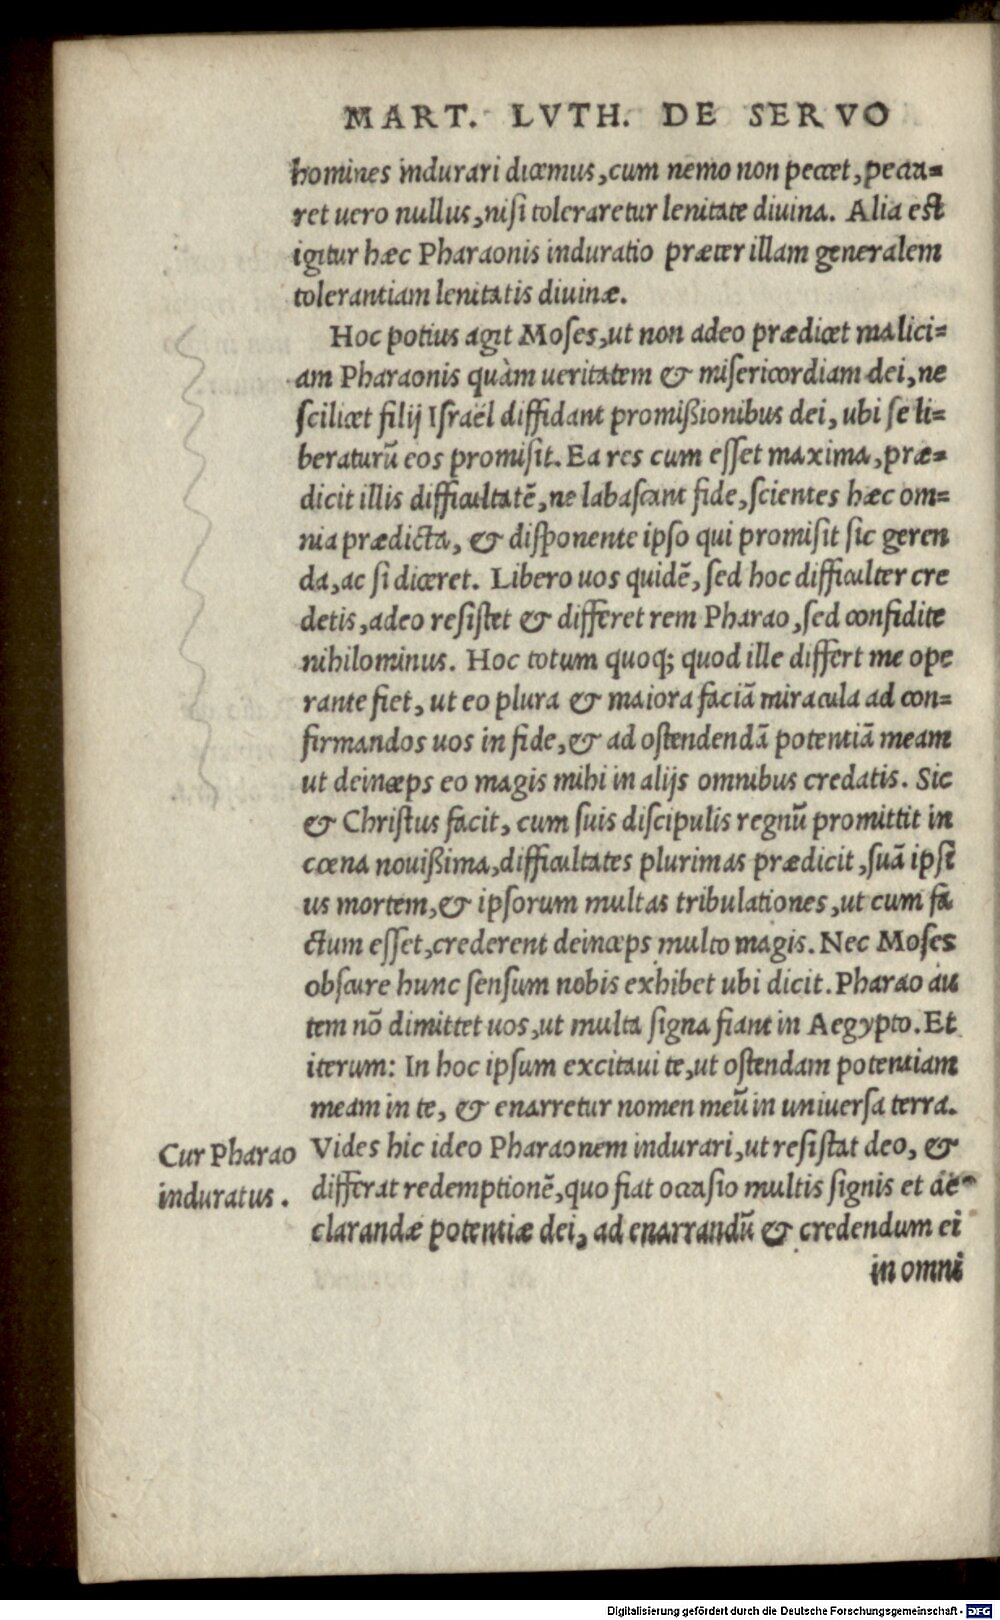 MART. LVTH. DE SERVO
homines indurari dicemus, cum nemo non peccet, pecca=
ret uero nullus, nisi toleraretur lenitate diuina. Alia est
igitur hæc Pharaonis induratio præter illam generalem
tolerantiam lenitatis diuinæ.
Hoc potius agit Moses, ut non adeo prædicet malici=
am Pharaonis quàm ueritatem & misericordiam dei, ne
scilicet filij Israël diffidant promißionibus dei, ubi se li=
beraturũ eos promisit. Ea res cum esset maxima, præ=
dicit illis difficultatẽ, ne labascant fide, scientes hæc om=
nia prædicta, & disponente ipso qui promisit sic geren
da, ac si diceret. Libero uos quidẽ, sed hoc difficulter cre
detis, adeo resistet & differet rem Pharao, sed confidite
nihilominus. Hoc totum quoq; quod ille differt me ope
rante fiet, ut eo plura & maiora faciã miracula ad con=
firmandos uos in fide, & ad ostendendã potentiã meam
ut deinceps eo magis mihi in alijs omnibus credatis. Sic
& Christus facit, cum suis discipulis regnũ promittit in
cœna nouißima, difficultates plurimas prædicit, suã ipsi
us mortem, & ipsorum multas tribulationes, ut cum fa
ctum esset, crederent deinceps multo magis. Nec Moses
obscure hunc sensum nobis exhibet ubi dicit. Pharao au
tem nõ dimittet uos, ut multa signa fiant in Aegypto. Et
iterum: In hoc ipsum excitaui te, ut ostendam potentiam
meam in te, & enarretur nomen meũ in uniuersa terra.
Cur Pharao
induratus.
Vides hic ideo Pharaonem indurari, ut resistat deo, &
differat redemptionẽ, quo fiat occasio multis signis et de=
clarandæ potentiæ dei, ad enarrandũ & credendum ei
in omni
Digitalisierung gefördert durch die Deutsche Forschungsgemeinschaft - DFG